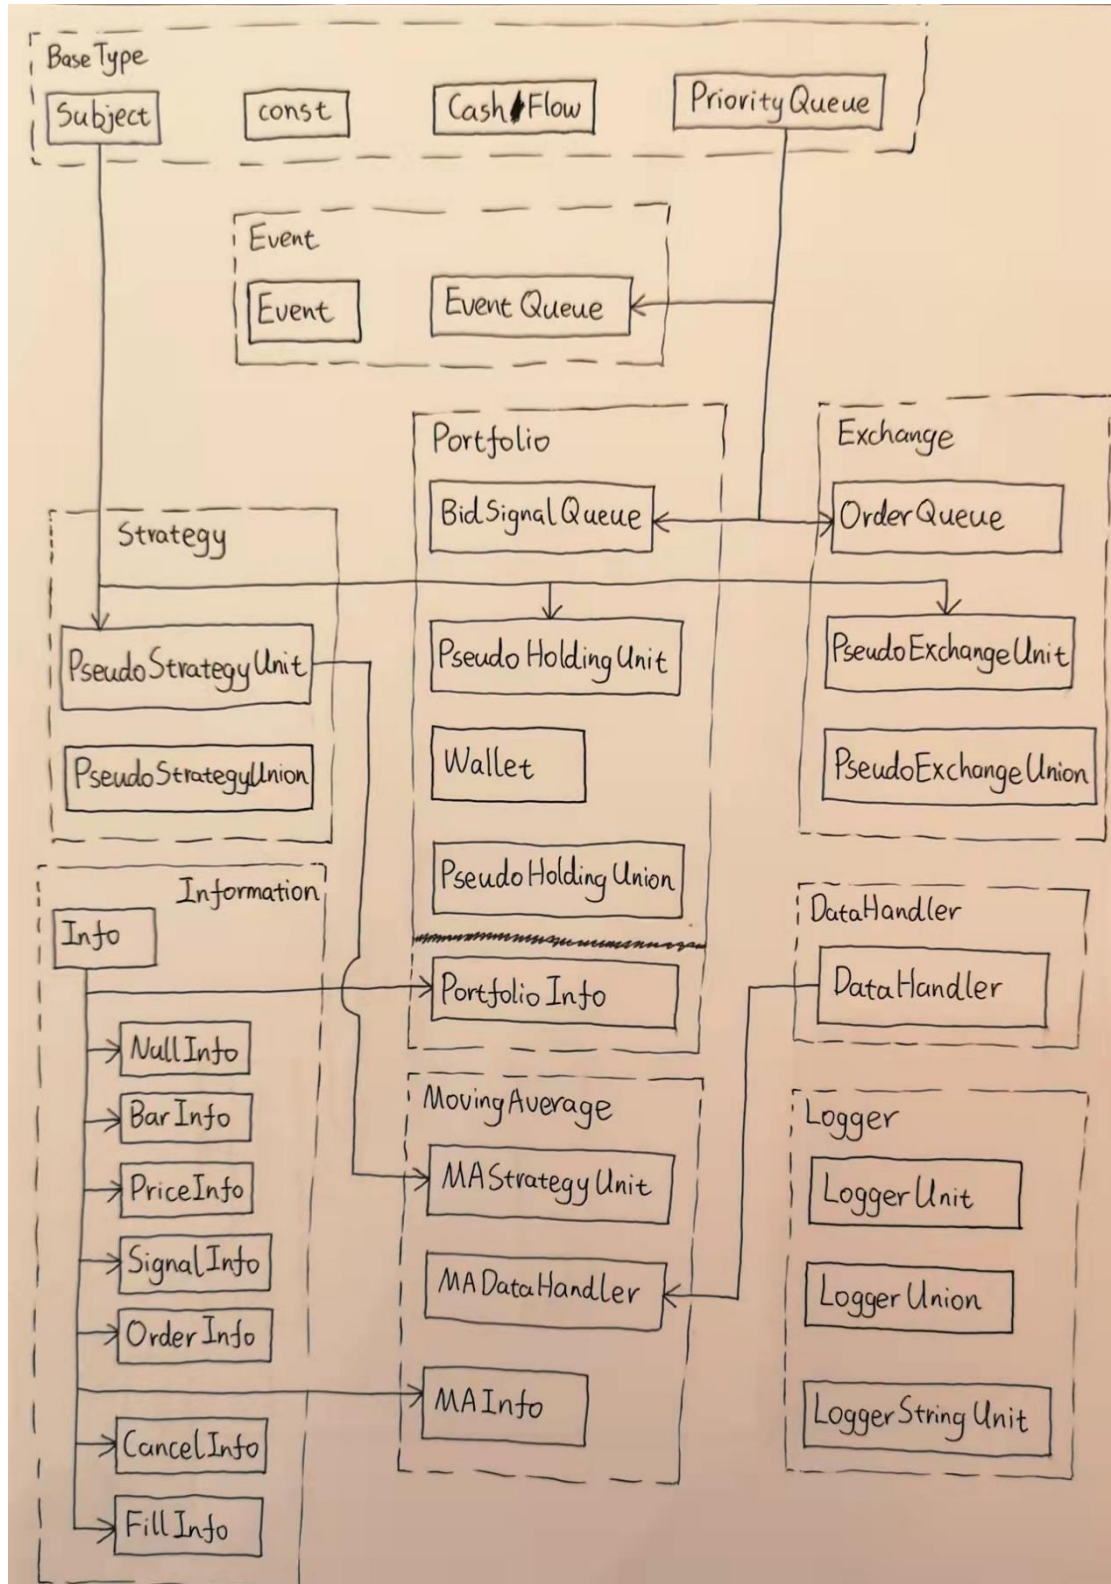 BaseType
Subject
const
CashFlow
PriorityQueue
Event
Event
EventQueue
Portfolio
BidSignalQueue
PseudoHoldingUnit
Wallet
PseudoHoldingUnion
PortfolioInfo
Exchange
OrderQueue
PseudoExchangeUnit
PseudoExchangeUnion
Strategy
PseudoStrategyUnit
PseudoStrategyUnion
Information
Info
NullInfo
BarInfo
PriceInfo
SignalInfo
OrderInfo
CancelInfo
FillInfo
MovingAverage
MAStrategyUnit
MADataHandler
MAInfo
DataHandler
DataHandler
Logger
LoggerUnit
LoggerUnion
LoggerStringUnit